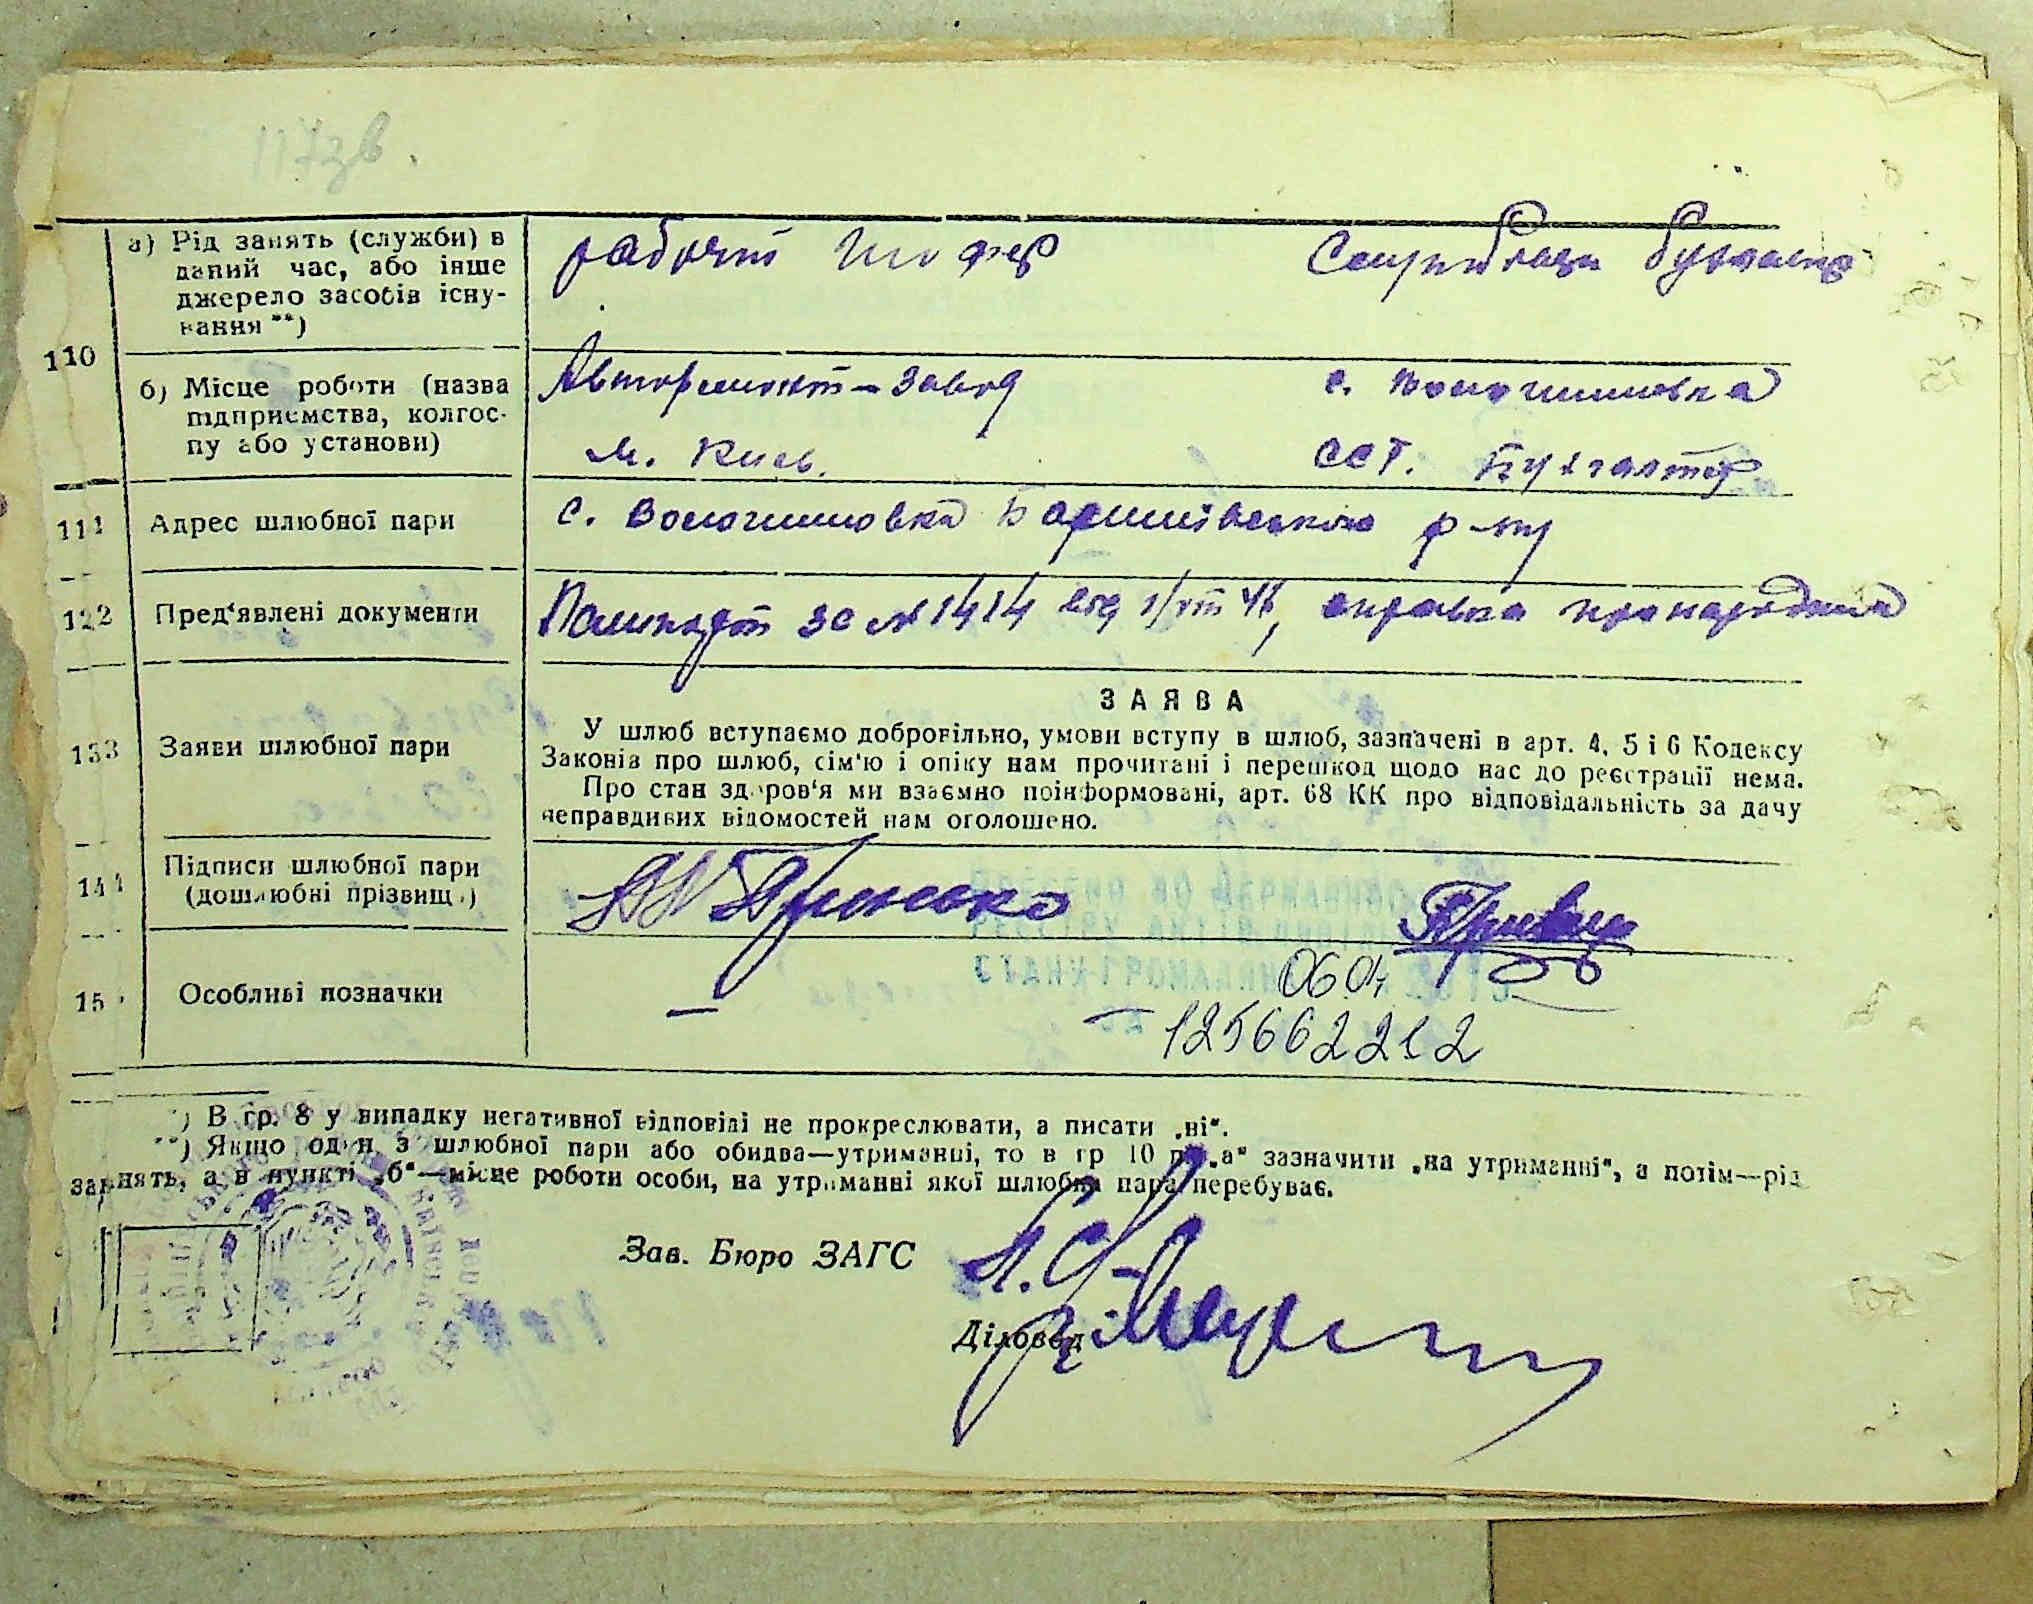 117зв.
110
а) Рід занять (служби) в
даний час, або інше
джерело засобів існу-
вання **)
рабочий шофер
б) Місце роботи (назва
підприємства, колгос-
пу або установи)
Авторемонт-завод
м. Киев.
с. Волошиновка
ССТ. Бухгалтер
111
Адрес шлюбної пари
с. Волошиновка Баришівського р-ну
122
Пред'явлені документи
Пашпорт ЗС № 1414, справка про народження
ЗАЯВА
133
Заяви шлюбної пари
У шлюб вступаємо добровільно, умови вступу в шлюб, зазначені в арт. 4, 5 і 6 Кодексу
Законів про шлюб, сім'ю і опіку нам прочитані і перешкод щодо нас до реєстрації нема.
Про стан здоров'я ми взаємно поінформовані, арт. 68 КК про відповідальність за дачу
неправдивих відомостей нам оголошено.
144
Підписи шлюбної пари
(дошлюбні прізвища)
15
Особливі позначки
—
0604
— 125662212
*) В гр. 8 у випадку негативної відповіді не прокреслювати, а писати „ні".
**) Якщо один з шлюбної пари або обидва—утриманці, то в гр 10 п. „а" зазначити „на утриманні", а потім—рід
занять, а в пункті „б"—місце роботи особи, на утриманні якої шлюбна пара перебуває.
Зав. Бюро ЗАГС
Діловод